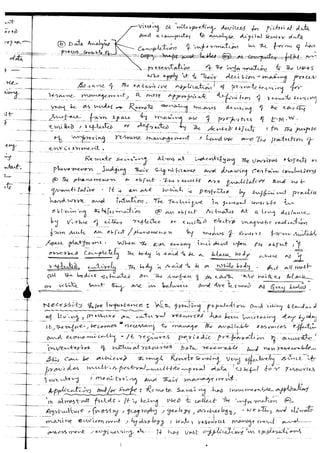 viewing & interpreting devices for pictorial data
and a computer to analyse digital sensor data
(b) Data Analysis
process consists of
Completion of information in the form of hard
copy maps and tables (or) as computer files and
presentation of the information to the users
who apply it to their decision-making process
Because of the extensive application of remote sensing for
resource management, a more appropriate definition of remote sensing
may be as under - Remote sensing means sensing of the earth's
surface from space by making use of properties of E.M.W.
emitted, reflected or by the sensed objects, for the purpose
of improving resource management, landuse and the protection of
environment.
Remote sensing aims at identifying the various objects or
phenomenon judging their significance and drawing certain conclusions
the phenomenon or object. The results are qualitative and not
quantitative. It is an art which is perfected by sufficient practice
hard work and intuition. The technique in general consists in
obtaining information an object situated at a long distance
by virtue of either reflection or emitted electro magnetic radiation
from such an object / phenomenon by means of sensors from suitable
space platforms. When the EM energy incident upon an object, if
absorbed completely the body is said to be a black body where as if
reflected entirely the body is said to be a white body. But all most
all the bodies situated on the surface of the earth are neither black
or white but they are in balance and are termed as grey bodies
Necessity & Importance : With growing population and rising standard
of living, pressure on natural resources has been increasing day by day
it, therefore, becomes necessary to manage the available resources effectively
and economically. It requires periodic preparation of accurate
inventories of natural resources both renewable and non renewable.
This can be achieved through Remote Sensing very effectively since it
provides multispectral and multitemporal data useful for resources
inventory, monitoring and their management.
Applications and/or Scope : Remote Sensing has innumerable applications
in almost all fields. It is being used to collect the information
Agriculture, forestry, geography, geology, archeology, weather and climate
marine environment, hydrology, water resources management and
assessment, engineering, etc. It has vast applications in explorations